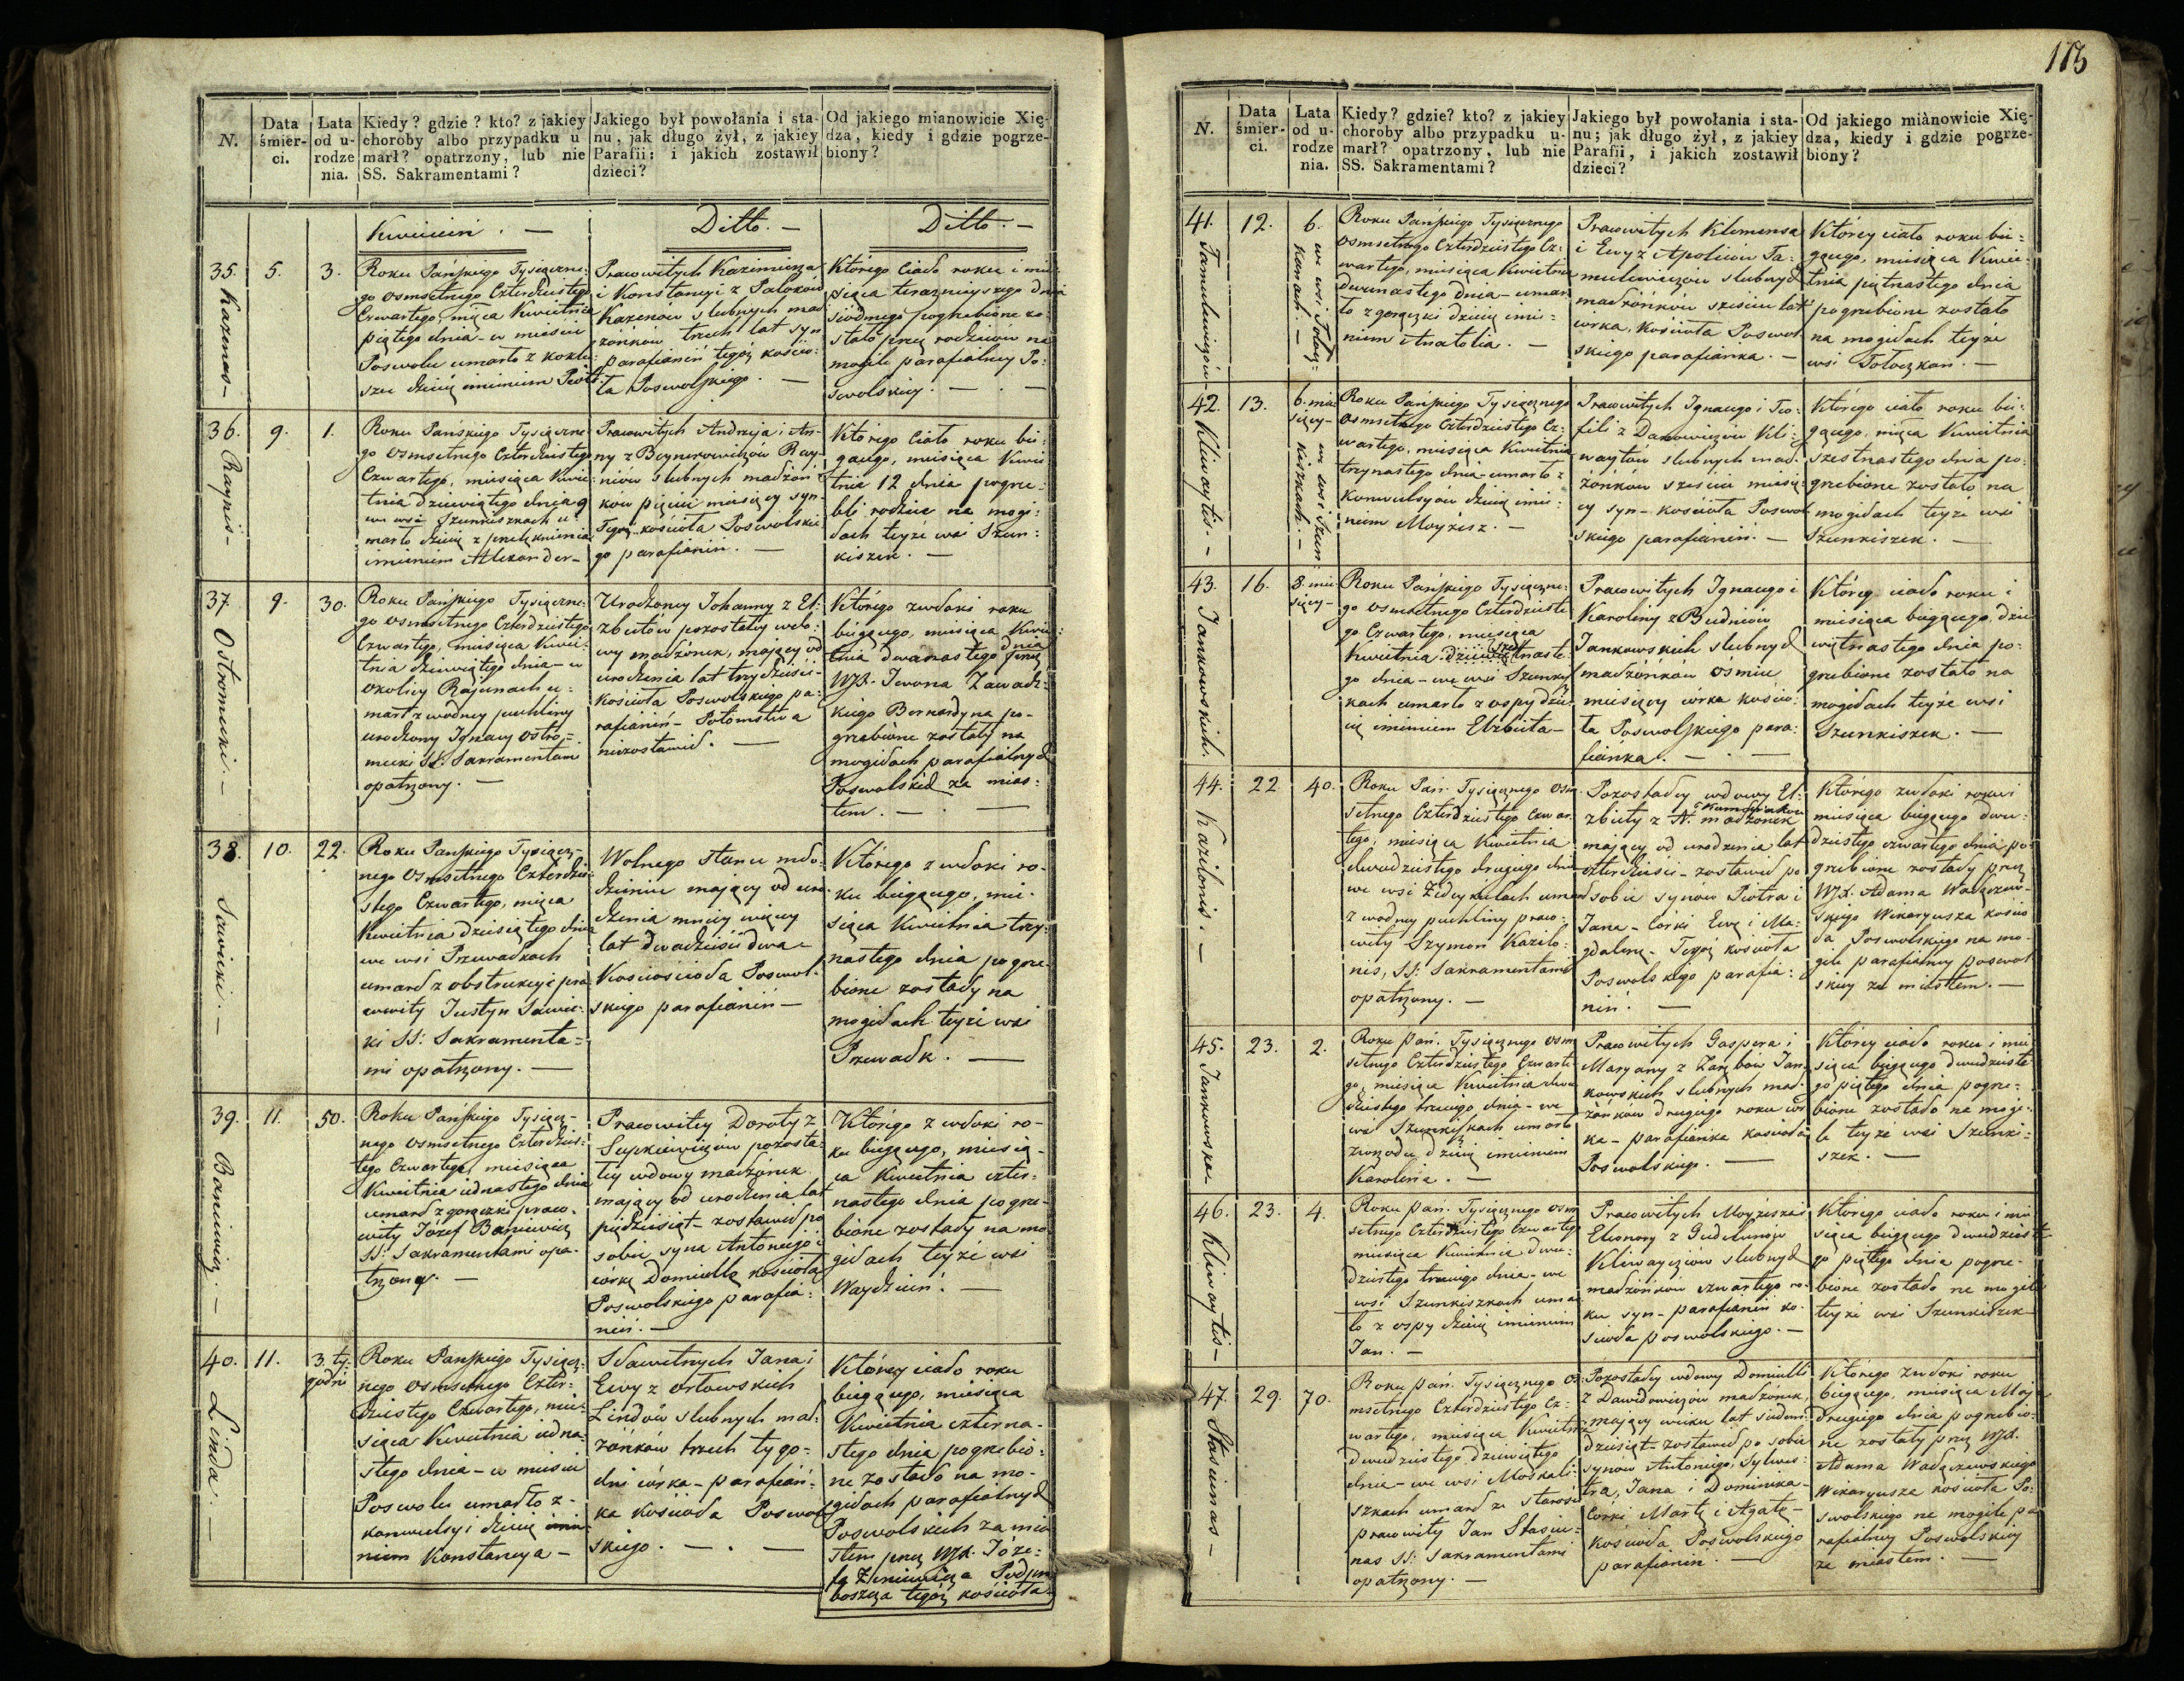 115
N.
Data śmierci.
Lata od urodzenia.
Kiedy? gdzie? kto? z jakiey
choroby albo przypadku u-
marł? opatrzony, lub nie
SS. Sakramentami?
Jakiego był powołania i sta-
nu, jak długo żył, z jakiey
Parafii: i jakich zostawił
dzieci?
Od jakiego mianowicie Xię-
dza, kiedy i gdzie pogrze-
biony?
Kwiecień. —
Ditto. —
Ditto. —
35. Kazenas —
5.
3.
Roku Pańskiego Tysiączne-
go osmsetnego Czterdziestego
Czwartego, mięca Kwietnia
piątego dnia - w mieście
Poswolu umarło z koklu-
szu dziecię imieniem Piotr
Pracowitych Kazimierza
i Konstancyi z
Kazenow slubnych mał-
żonków trzech lat syn
parafianin tegoż kościo-
ła Poswolskiego. —
Którego Ciało roku i mie-
sięca teraznieyszego dnia
siodmego pogrzebione zo-
stało przez rodziców na
mogile parafialney Po-
swolskiey. —
36. Raynis —
9.
1.
Roku Pańskiego Tysiączne
go osmsetnego Czterdziestego
Czwartego, miesiąca Kwie-
tnia dziewiątego dnia 9
we wsi Szunkiszkach u-
marło dziecię z
imieniem Alexander —
Pracowitych Andrzeja i An-
ny z Ray-
niów slubnych małżon-
ków pięciu miesięcy syn
Tegoż kościoła Poswolskie
go parafianin. —
Którego Ciało roku bie-
gącego, miesiąca Kwie
tnia 12 dnia pogrze-
bli rodzice na mogi-
łach teyże wsi Szun-
kiszek. —
37. Ostromecki. —
9.
30.
Roku Pańskiego Tysiączne-
go osmsetnego Czterdziestego
Czwartego, miesiąca Kwie-
tnia dziewiątego dnia - w
okolicy Rajunach u-
marł z wodney puchliny
urodzony Ignacy Ostro-
mecki SS. Sakramentami
opatrzony. —
Urodzoney Johanny z El-
zbutów pozostałey wdo-
wy małżonek, mający od
urodzenia lat trzydzieści
kościoła Poswolskiego pa-
rafianin - Potomstwa
niezostawił. —
Którego zwłoki roku
biegącego, miesiąca Kwie-
tnia dwanastego dnia przez
WJX. Iwona Zawadz-
kiego Bernardyna po-
grzebione zostały na
mogiłach parafialnych
Poswolskich za mias-
tem. —
38. Sawicki. —
10.
22.
Roku Pańskiego Tysiącz-
nego osmsetnego Czterdzie-
stego Czwartego, mięca
Kwietnia dziesiątego dnia
we wsi Przewadkach
umarł z obstrukcyi pra-
cowity Justyn Sawic-
ki SS. Sakramenta-
mi opatrzony. —
Wolnego stanu mło-
dzieniec mający od uro-
dzenia mniey więcey
lat dwadzieścia dwa
Poswol-
skiego parafianin —
Którego zwłoki ro-
ku biegącego, mie-
siąca Kwietnia trzy-
nastego dnia pogrze-
bione zostały na
mogiłach teyże wsi
Przewadk. —
39. Baniewicz. —
11.
50.
Roku Pańskiego Tysiącz-
nego osmsetnego Czterdzies-
tego Czwartego, miesiąca
Kwietnia iednastego dnia
umarł z gorączki praco-
wity Józef Baniewicz
SS. Sakramentami opa-
trzony. —
Pracowitey Doroty z
Supkiewiczów pozosta-
łey wdowy małżonek
mający od urodzenia lat
pięćdziesiąt - zostawił po
sobie syna Antoniego i
córkę Domicellę kościoła
Poswolskiego parafia-
nin. —
Którego zwłoki ro-
ku biegącego, miesią-
ca Kwietnia czter-
nastego dnia pogrze-
bione zostały na mo-
giłach teyże wsi
Waydziun. —
40. Linda. —
11.
3. ty-
godni
Roku Pańskiego Tysiącz-
nego osmsetnego Czter-
dziestego Czwartego, mie-
siąca Kwietnia iedna-
stego dnia - w mieście
Poswolu umarło z
konwulsyi dziecię imie-
niem Konstancya —
Sławetnych Jana i
Ewy z Orłowskich
Lindów slubnych mał-
żonków trzech tygo-
dni córka - parafian-
ka kościoła Poswol-
skiego. —
Którey ciało roku
biegącego, miesiąca
Kwietnia czterna-
stego dnia pogrzebio-
ne zostało na mo-
giłach parafialnych
Poswolskich za mia-
stem przez WJX. Józe-
fa
boszcza tegoż kościoła
N.
Data śmierci.
Lata od urodzenia.
Kiedy? gdzie? kto? z jakiey
choroby albo przypadku u-
marł? opatrzony, lub nie
SS. Sakramentami?
Jakiego był powołania i sta-
nu; jak długo żył, z jakiey
Parafii, i jakich zostawił
dzieci?
Od jakiego miánowicie Xię-
dza, kiedy i gdzie pogrze-
biony?
41. Tamulewiczów —
12.
6.
w wsi Tołocz-
kanach. —
Roku Pańskiego Tysiącznego
Osmsetnego Czterdziestego Cz-
wartego, miesiąca Kwietnia
dwunastego dnia - umar
ło z gorączki dziecię imie-
niem Anatolia. —
Pracowitych Klemensa
i Ewy z Apolinów Ta-
mulewiczów slubnych
małżonków sześciu lat
córka, kościoła Poswol
skiego parafianka. —
Którey ciało roku bie-
gącego, miesiąca Kwie-
tnia piętnastego dnia
pogrzebione zostało
na mogiłach teyże
wsi Tołoczkan. —
42. Kliwaytis. —
13.
6. mie
sięcy —
we wsi Szun-
kiszkach. —
Roku Pańskiego Tysiącznego
Osmsetnego Czterdziestego Cz-
wartego, miesiąca Kwietnia
trzynastego dnia - umarło z
konwulsyów dziecię imie-
niem Moyżesz. —
Pracowitych Ignacego i Teo-
fili z Danowiczów Kli-
waytów slubnych mał-
żonków sześciu miesię-
cy syn - kościoła Poswol
skiego parafianin. —
Którego ciało roku bie-
gącego, mięca Kwietnia
szestnastego dnia po-
grzebione zostało na
mogiłach teyże wsi
Szunkiszek. —
43. Jankowskich.
16.
8. mie
sięcy —
Roku Pańskiego Tysiączne-
go osmsetnego Czterdzieste
go Czwartego, miesiąca
Kwietnia szesnaste
go dnia - we wsi Szunkisz
kach umarło z ospy dzie-
cię imieniem Elzbieta —
Pracowitych Ignacego i
Karoliny z Budniów
Jankowskich slubnych
małżonków ośmiu
miesięcy córka kościo-
ła Poswolskiego para-
fianka. —
Którey ciało roku i
miesiąca biegącego, dzie
więtnastego dnia po-
grzebione zostało na
mogiłach teyże wsi
Szunkiszek. —
44. Kazilonis. —
22
40.
Roku Pań. Tysiącznego Osm
setnego Czterdziestego Czwar-
tego, miesiąca Kwietnia
dwudziestego drugiego dnia
we wsi umarł
z wodney puchliny praco-
wity Szymon Kazilo-
nis, SS. Sakramentami
opatrzony. —
Pozostałey wdowy El-
zbiety z małżonek
mający od urodzenia lat
czterdzieści - zostawił po
sobie synów Piotra i
Jana - Córki Ewę i Ma-
gdalenę - Tegoż kościoła
Poswolskiego parafia-
nin. —
Którego zwłoki roku i
miesiąca biegącego dwu-
dziestego czwartego dnia po-
grzebione zostały przez
WJX. Adama Wadaczew-
skiego Wikaryusza kościo
ła Poswolskiego na mo-
gile parafialney poswol
skiey za miastem. —
45. Jankowska
23.
2.
Roku pań. Tysiącznego osm
setnego Czterdziestego Czwarte
go, miesiąca Kwietnia dwu
dziestego trzeciego dnia - we
wsi Szunkiszkach umarło
z wrzodu dziecię imieniem
Karolina. —
Pracowitych Gaspera i
Maryany z Zarębów Jan-
kowskich slubnych mał-
żonków drugiego roku cór
ka - parafianka kościoła
Poswolskiego. —
Którey ciało roku i mie
siąca biegącego dwudzieste
go piątego dnia pogrze-
bione zostało na mogi-
le teyże wsi Szunki-
szek. —
46. Kliwaytis —
23.
4.
Roku pań. Tysiącznego osm
setnego Czterdziestego Czwartego
miesiąca Kwietnia dwu-
dziestego trzeciego dnia - we
wsi Szunkiszkach umar
ło z ospy dziecię imieniem
Jan. —
Pracowitych Moyżesza i
Eleonory z
Kliwayciów slubnych
małżonków czwartego ro-
ku syn - parafianin ko-
ścioła poswolskiego. —
Którego ciało roku i mie
siąca biegącego dwudzieste
go piątego dnia pogrze-
bione zostało na mogile
teyże wsi Szunkiszek
47. Stasiunas —
29.
70.
Roku pań. Tysiącznego O-
smsetnego Czterdziestego Cz-
wartego, miesiąca Kwietnia
dwudziestego dziewiątego
dnia - we wsi Moskali-
szkach umarł ze starości
pracowity Jan Stasiu-
nas SS. Sakramentami
opatrzony. —
Pozostałey wdowy Domicelli
z Dawidowiczów małżonek,
mający wieku lat siedem-
dziesiąt - zostawił po sobie
synów Antoniego, Sylwes-
tra, Jana i Dominika -
Córki Martę i Agatę -
kościoła Poswolskiego
parafianin. —
Którego zwłoki roku
biegącego, miesiąca Maja
drugiego dnia pogrzebio-
ne zostały przez WJX.
Adama Wadaczewskiego
Wikaryusza kościoła Po-
swolskiego na mogile pa-
rafialney Poswolskiey
za miastem. —